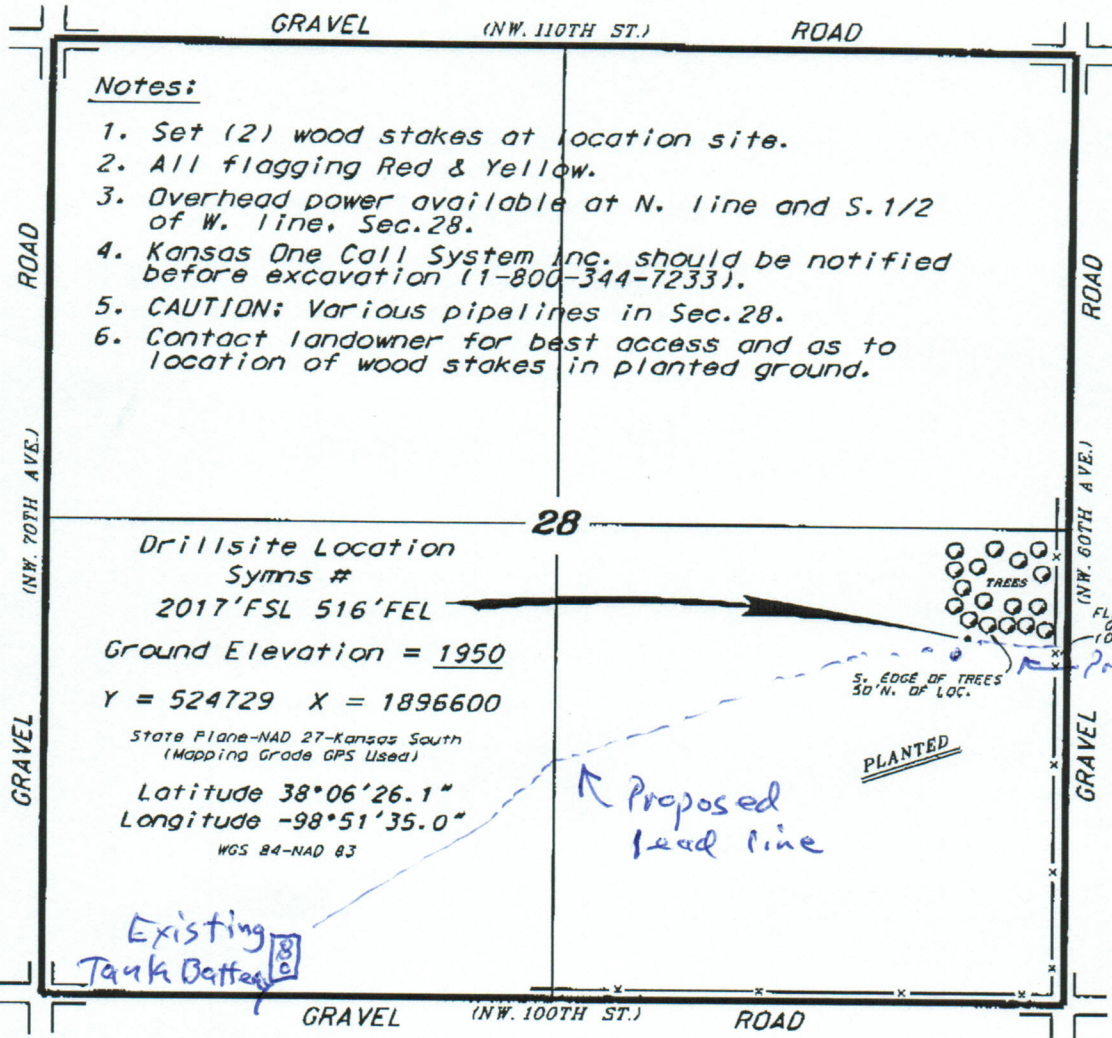 GRAVEL (NW. 110TH ST.) ROAD
Notes:
1. Set (2) wood stakes at location site.
2. All flagging Red & Yellow.
3. Overhead power available at N. line and S.1/2
of W. line, Sec.28.
4. Kansas One Call System Inc. should be notified
before excavation (1-800-344-7233).
5. CAUTION: Various pipelines in Sec.28.
6. Contact landowner for best access and as to
location of wood stakes in planted ground.
GRAVEL (NW. 70TH AVE.) ROAD
GRAVEL (NW. 60TH AVE.) ROAD
28
Drillsite Location
Symns #
2017'FSL 516'FEL
Ground Elevation = 1950
Y = 524729 X = 1896600
State Plane-NAD 27-Kansas South
(Mapping Grade GPS Used)
Latitude 38°06'26.1"
Longitude -98°51'35.0"
WGS 84-NAD 83
TREES
S. EDGE OF TREES
50'N. OF LOC.
PLANTED
Proposed
lead line
Existing
Tank Battery
GRAVEL (NW. 100TH ST.) ROAD